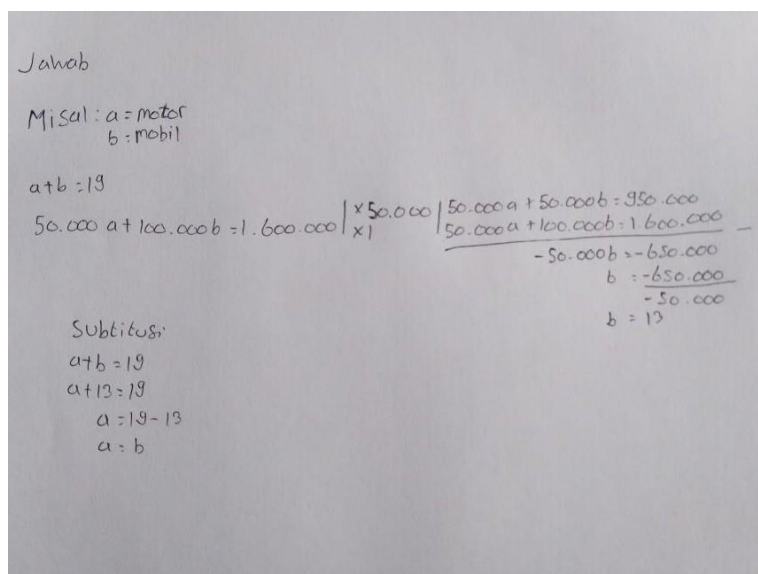 Jawab
Misal : a = motor
b = mobil
a + b = 19
50.000 a + 100.000 b = 1.600.000
| x 50.000 |
| x 1
50.000 a + 50.000 b = 950.000
50.000 a + 100.000 b = 1.600.000 -
-50.000 b = -650.000
b = -650.000
-50.000
b = 13
Subtitusi
a + b = 19
a + 13 = 19
a = 19 - 13
a = b